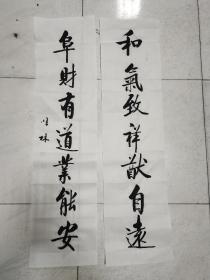 和氣致祥猷自遠
阜財有道業能安